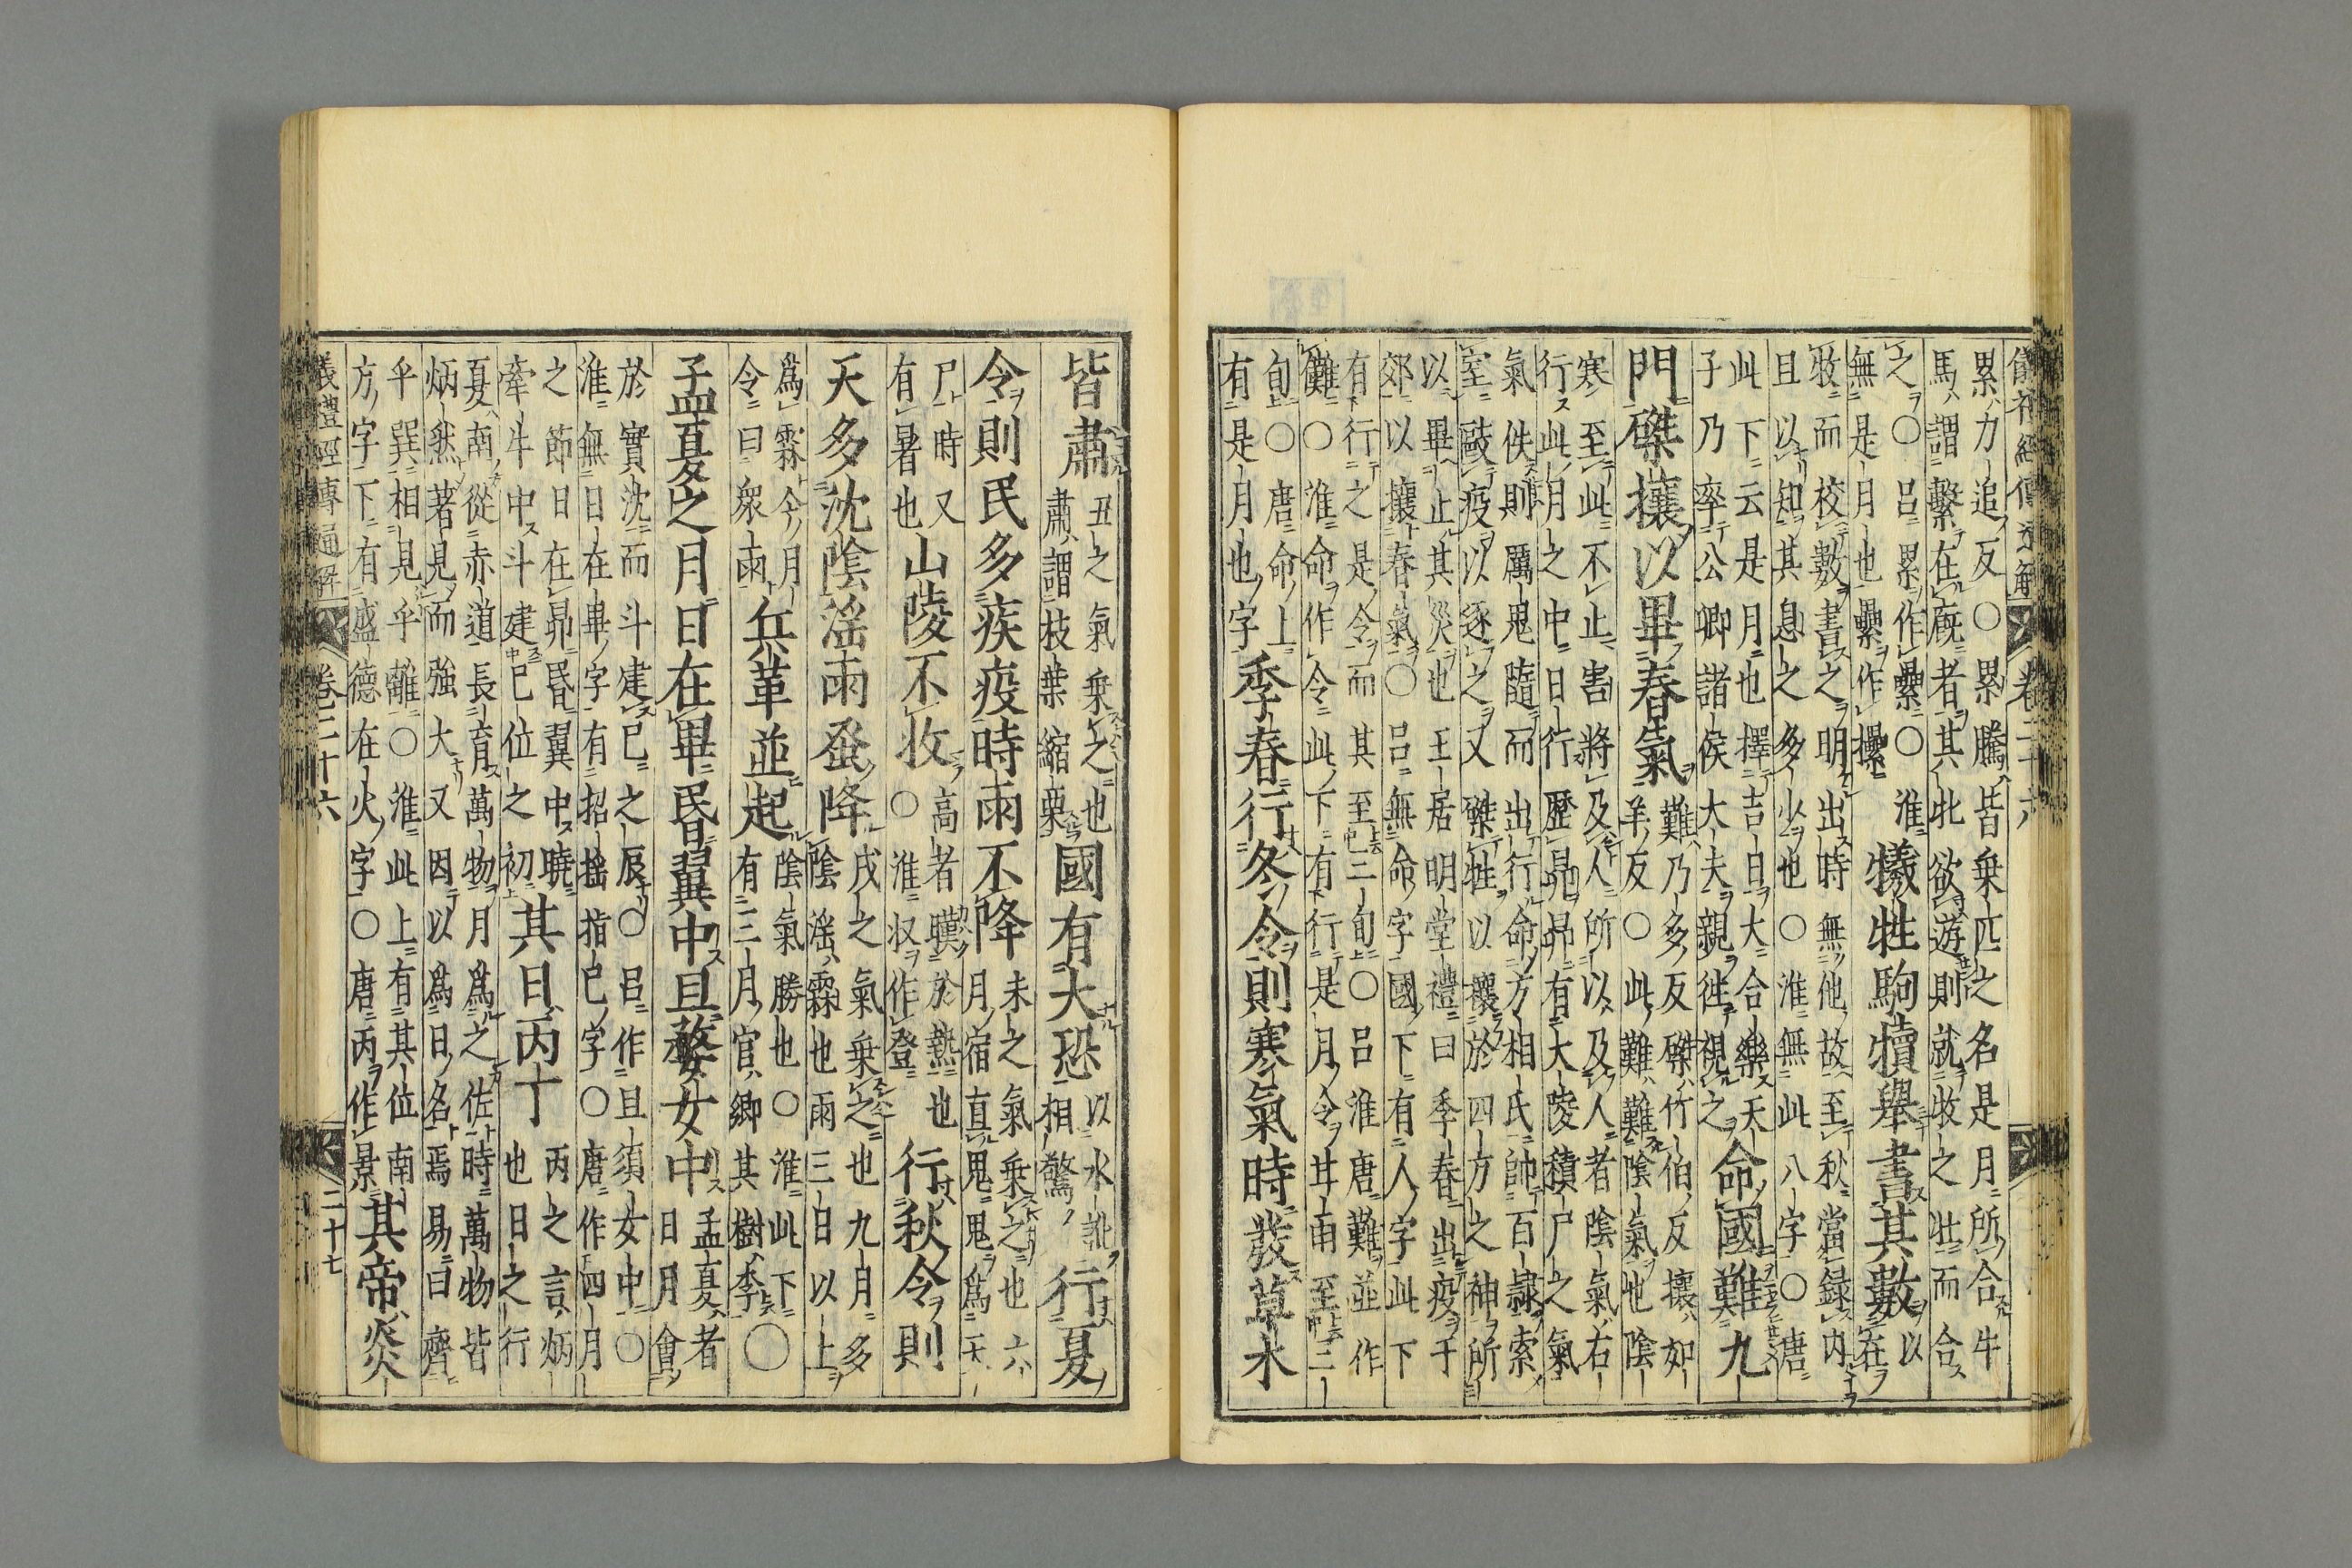 儀禮經傳通解　卷二十六
累力追反○累騰皆乗匹之名是月所合牛
馬謂繫在廐者其牝欲遊則就牧之牡而合
之○呂累作纍○淮
無是月也纍作
犧牲駒犢舉書其數
以
在
牧而校數書之明出時無他故至秋當録内
且以知其息之多少也○淮無此八字○唐
此下云是月也擇吉日大合樂天
子乃率公卿諸侯大夫親往視之
命國難九
門磔攘以畢春氣
難乃多反磔竹伯反攘如
羊反○此難難陰氣也陰
寒至此不止害將及人所以及人者陰氣右
行此月之中日行歷昴昴有大陵積尸之氣
氣佚則厲鬼隨而出行命方相氏帥百隷索
室敺疫以逐之又磔牲以攘於四方之神所
以畢止其災也王居明堂禮曰季春出疫于
郊以攘春氣○呂無命字國下有人字此下
有行之是令而其至三旬○呂淮唐難並作
儺○淮命作令此下有行是月令廿雨至三
旬○唐命上
有是月也字
季春行冬令則寒氣時發草木
皆肅
丑之氣乗之也
肅謂枝葉縮栗
國有大恐
以水訛
相驚
行夏
令則民多疾疫時雨不降
未之氣乗之也六
月宿直鬼鬼爲天
尸時又
有暑也
山陵不收
高者暵於熱也
○淮収作登
行秋令則
天多沈陰滛雨蚤降
戌之氣乗之也九月多
陰滛霖也雨三日以上
爲霖今月
令曰衆雨
兵革並起
陰氣勝也○淮此下
有三月官鄉其樹李
○
孟夏之月日在畢昬翼中旦婺女中
孟夏者
日月會
於實沈而斗建巳之辰○呂作旦須女中○
淮無日在畢字有招揺指巳字○唐作四月
之節日在昴昬翼中曉
牽牛中斗建巳位之初
其日丙丁
丙之言炳
也日之行
夏南從赤道長育萬物月爲之佐時萬物皆
炳然著見而強大又因以爲日名焉易曰齊
乎巽相見乎離○淮此上有其位南
方字下有盛德在火字○唐丙作景
其帝炎
儀禮經傳通解　卷二十六　二十七